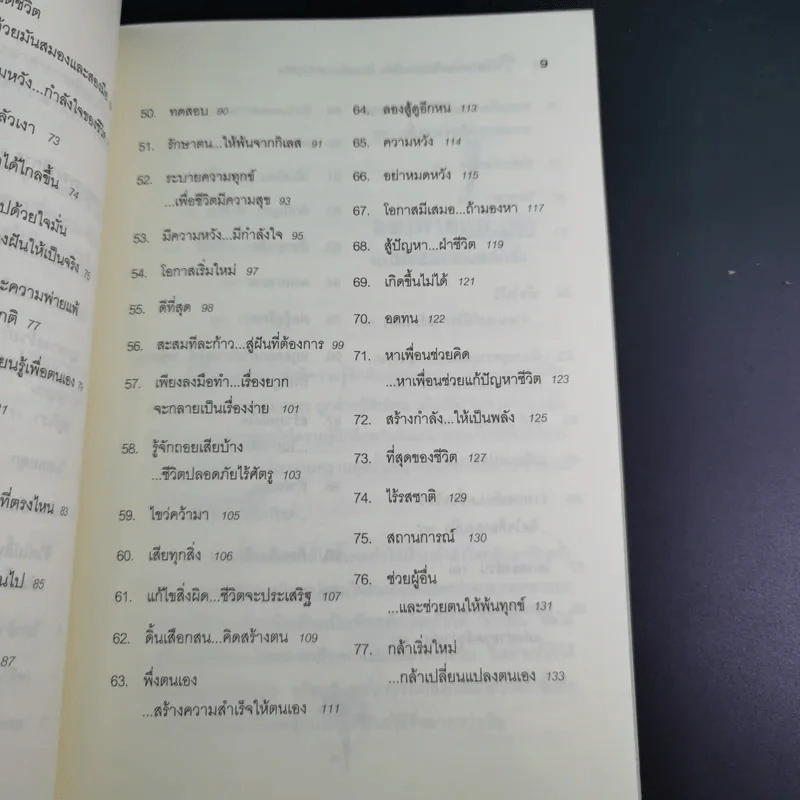 ชีวิต
ด้วยมันสมองและสองมือ
วามหวัง...กำลังใจของชีวิต
ลัวเงา 73
ได้ไกลขึ้น 74
ปด้วยใจมั่น
งฝันให้เป็นจริง 75
ะความพ่ายแพ้
กติ 77
ยนรู้เพื่อตนเอง 79
81
ที่ตรงไหน 83
นไป 85
87
9
50. ทดสอบ 90
51. รักษาตน...ให้พ้นจากกิเลส 91
52. ระบายความทุกข์
...เพื่อชีวิตมีความสุข 93
53. มีความหวัง...มีกำลังใจ 95
54. โอกาสเริ่มใหม่ 97
55. ดีที่สุด 98
56. สะสมทีละก้าว...สู่ฝันที่ต้องการ 99
57. เพียงลงมือทำ...เรื่องยาก
จะกลายเป็นเรื่องง่าย 101
58. รู้จักถอยเสียบ้าง
...ชีวิตปลอดภัยไร้ศัตรู 103
59. ไขว่คว้ามา 105
60. เสียทุกสิ่ง 106
61. แก้ไขสิ่งผิด...ชีวิตจะประเสริฐ 107
62. ดิ้นเสือกสน...คิดสร้างตน 109
63. พึ่งตนเอง
...สร้างความสำเร็จให้ตนเอง 111
64. ลองสู้ดูอีกหน 113
65. ความหวัง 114
66. อย่าหมดหวัง 115
67. โอกาสมีเสมอ...ถ้ามองหา 117
68. สู้ปัญหา...ฝ่าชีวิต 119
69. เกิดขึ้นไม่ได้ 121
70. อดทน 122
71. หาเพื่อนช่วยคิด
...หาเพื่อนช่วยแก้ปัญหาชีวิต 123
72. สร้างกำลัง...ให้เป็นพลัง 125
73. ที่สุดของชีวิต 127
74. ไร้รสชาติ 129
75. สถานการณ์ 130
76. ช่วยผู้อื่น
...และช่วยตนให้พ้นทุกข์ 131
77. กล้าเริ่มใหม่
...กล้าเปลี่ยนแปลงตนเอง 133